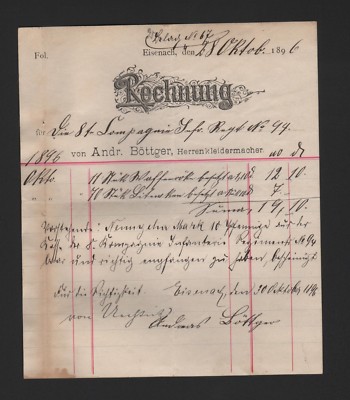 Belag No 67
Fol. Eisenach, den 28 Oktob. 1896
Rechnung
für Die 8te Compagnie Infr. Regt No 94.
von Andr. Böttger, Herrenkleidermacher.
1896 M d
Okto 11 Stück Waffenröcke 12 10.
" 10 Stück 7 -
Summa 19, 10.
Vorstehende Neunzehn Mark 10 Pfennige aus der
Kasse der 8. Kompagnie Infanterie Regiments No 94
baar und richtig empfangen zu haben, bescheinigt
Für die Richtigkeit. Eisenach, den 30 Oktober 1896
Andreas Böttger